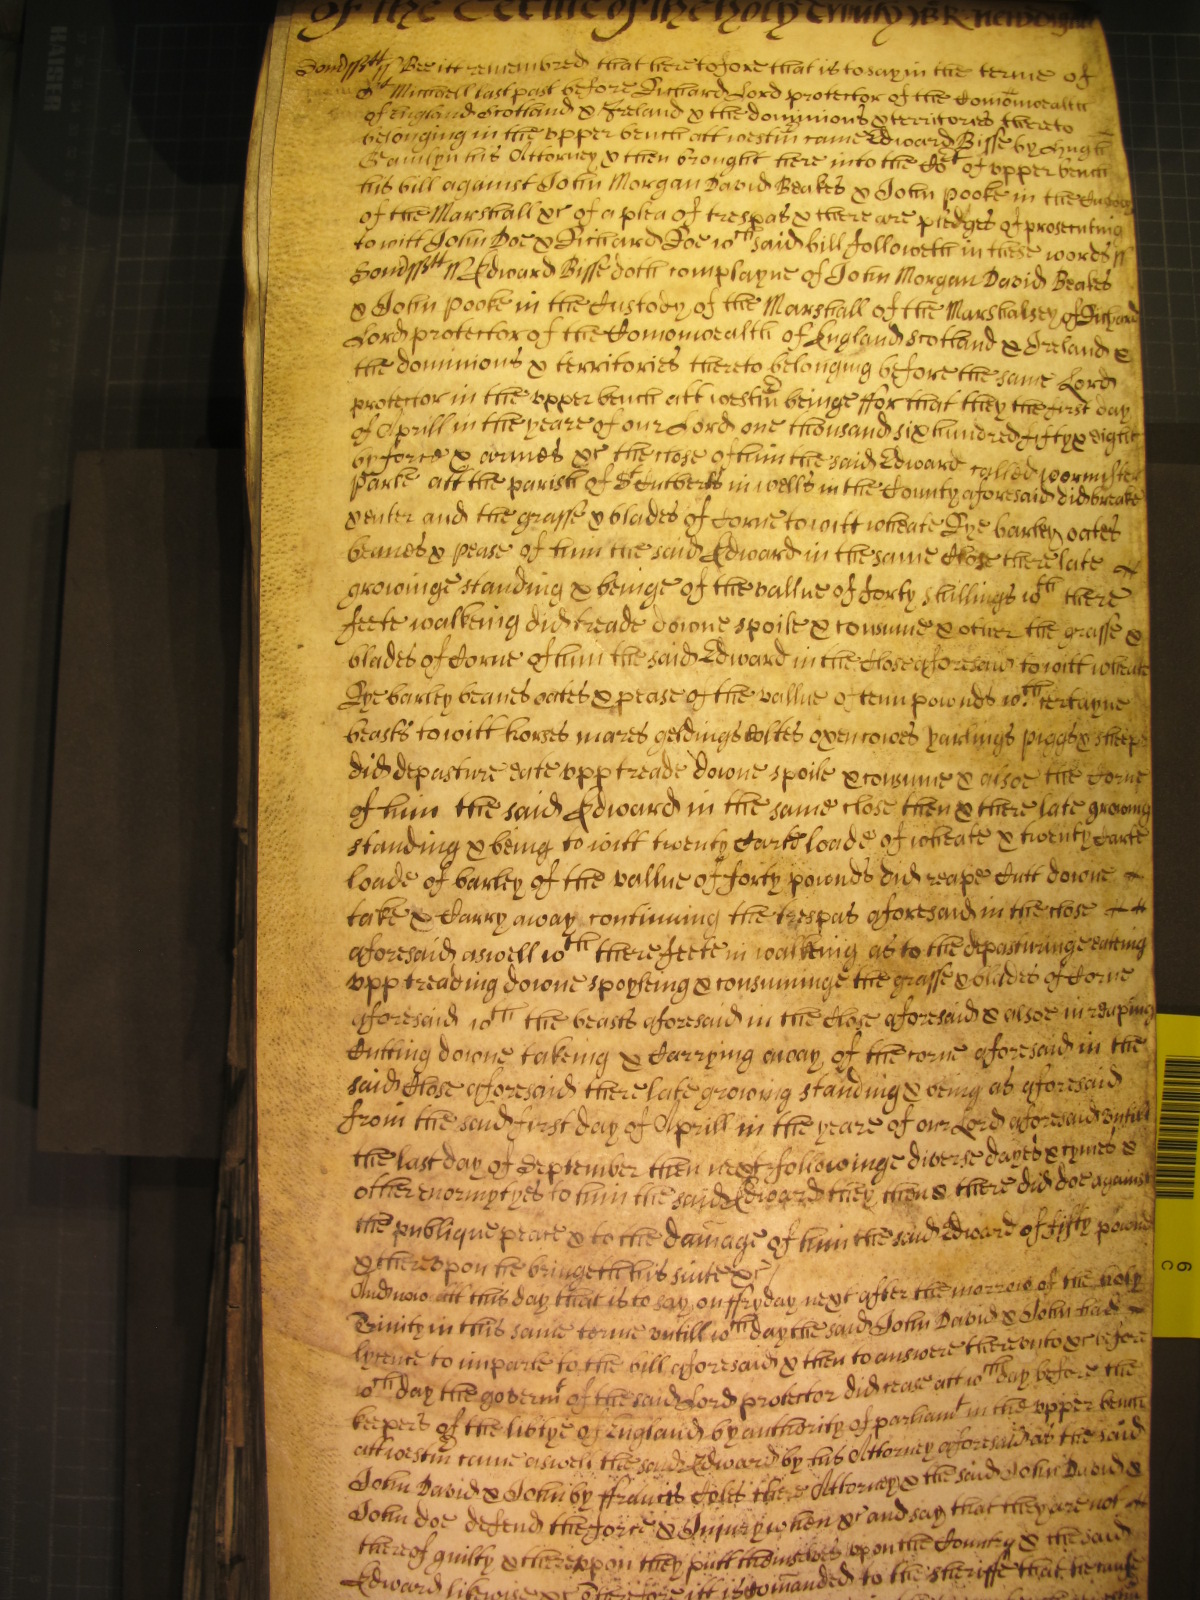 of the Terme of the holy Trinity
Somrsstt ss Bee itt remembred that heretofore that is to say in the terme of
St Michaell last past before Richard Lord protector of the Comonwealth
of England Scotland & Ireland & the dominions & territories thereto
belonging in the upper bench att westm came Edward Bisse by Hugh
his Attorney & then brought here into the Cort of upper bench
his bill against John Morgan David Beakes & John Pooke in the Custody
of the Marshall &c of a plea of trespas & there are pledges of prosecuting
to witt John Doe & Richard Roe wch said bill followeth in these words ss
Somrsstt ss Edward Bisse doth complayne of John Morgan David Beakes
& John Pooke in the Custody of the Marshall of the Marshalsey of Richard
Lord protector of the Comonwealth of England Scotland & Ireland &
the dominions & territories thereto belonging before the same Lord
protector in the upper bench att westm beinge ffor that they the first day
of Aprill in the yeare of our Lord one thousand six hundred fifty & eight
by force & armes &c the close of him the said Edward called
Parke att the parish of St Cutberts in wells in the County aforesaid did breake
& enter and the grasse & blades of Corne to witt wheate Rye barley oates
beanes & pease of him the said Edward in the same Close there late
growinge standing & beinge of the vallue of forty shillings wth there
feete walkeing did treade downe spoile & consume & other the grasse &
blades of Corne of him the said Edward in the Close aforesaid to witt wheate
Rye barley beanes oates & pease of the vallue of tenn pownds wth certayne
beasts to witt horses mares geldings Coltes oxen cowes yarlings piggs & sheepe
did depasture eate upp treade downe spoile & consume & alsoe the Corne
of him the said Edward in the same close then & there late growing
standing & being to witt twenty Carte loade of wheate & twenty Carte
loade of barley of the vallue of forty pownds did reape Cutt downe
take & Carry away continuing the trespas aforesaid in the close
aforesaid aswell wth there feete in walkeing as to the depasturinge eateing
upp treading downe spoyleing & consuminge the grasse & blades of Corne
aforesaid wth the beasts aforesaid in the Close aforesaid & alsoe in reaping
Cutting downe takeing & Carrying away of the corne aforesaid in the
said Close aforesaid there late growing standing & being as aforesaid
from the said first day of Aprill in the yeare of our Lord aforesaid untill
the last day of September then next followinge diverse dayes & tymes &
other enormytyes to him the said Edward they then & there did doe against
the publique peace & to the damage of him the said Edward of fifty pownds
& thereupon he bringeth his suite &c
And now att this day that is to say on ffryday next after the morrow of the holy
Trinity in this same terme untill wch day the said John David & John had
lycence to imparle to the bill aforesaid & then to answere thereunto &c before
wch day the governmt of the said Lord protector did cease att wch day before the
keepers of the libtye of England by authority of parliamt in the upper bench
att westm came aswell the said Edward by his Attorney aforesaid as the said
John David & John by ffrancis Coles there Attorney & the said John David &
John doe defend the force & Injury when &c and say that they are not
thereof guilty & thereuppon they putt themselves upon the Country & the said
Edward likewise &c Therefore itt is comanded to the sheriffe that he cause